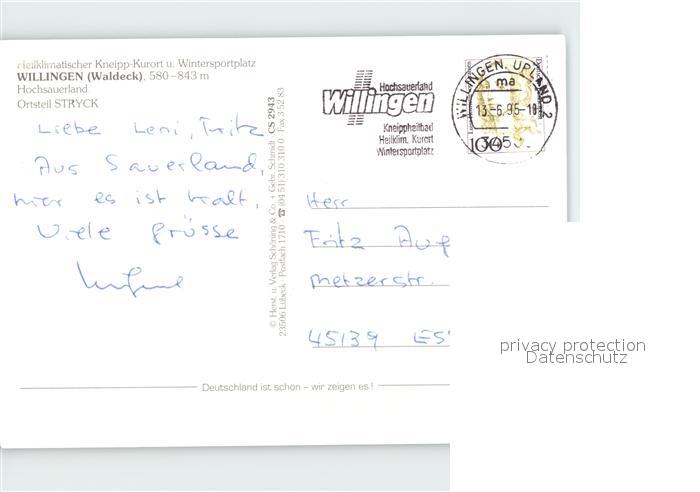 Heilklimatischer Kneipp-Kurort u. Wintersportplatz
WILLINGEN (Waldeck), 580–843 m
Hochsauerland
Ortsteil STRYCK
Liebe Leni, Fritz
Aus Sauerland,
hier es ist kalt.
Viele Grüsse
© Herst. u. Verlag Schöning & Co. + Gebr. Schmidt CS 2943
23506 Lübeck Postfach 1710 · ☎ (04 51) 310 310 0 Fax 3 52 83
Hochsauerland
Willingen
Kneippheilbad
Heilklim. Kurort
Wintersportplatz
WILLINGEN, UPLAND 2
ma
13.-6.95-18
3450
100
Herr
Fritz Aug
Metzerstr.
45139 ES
Deutschland ist schön – wir zeigen es!
privacy protection
Datenschutz